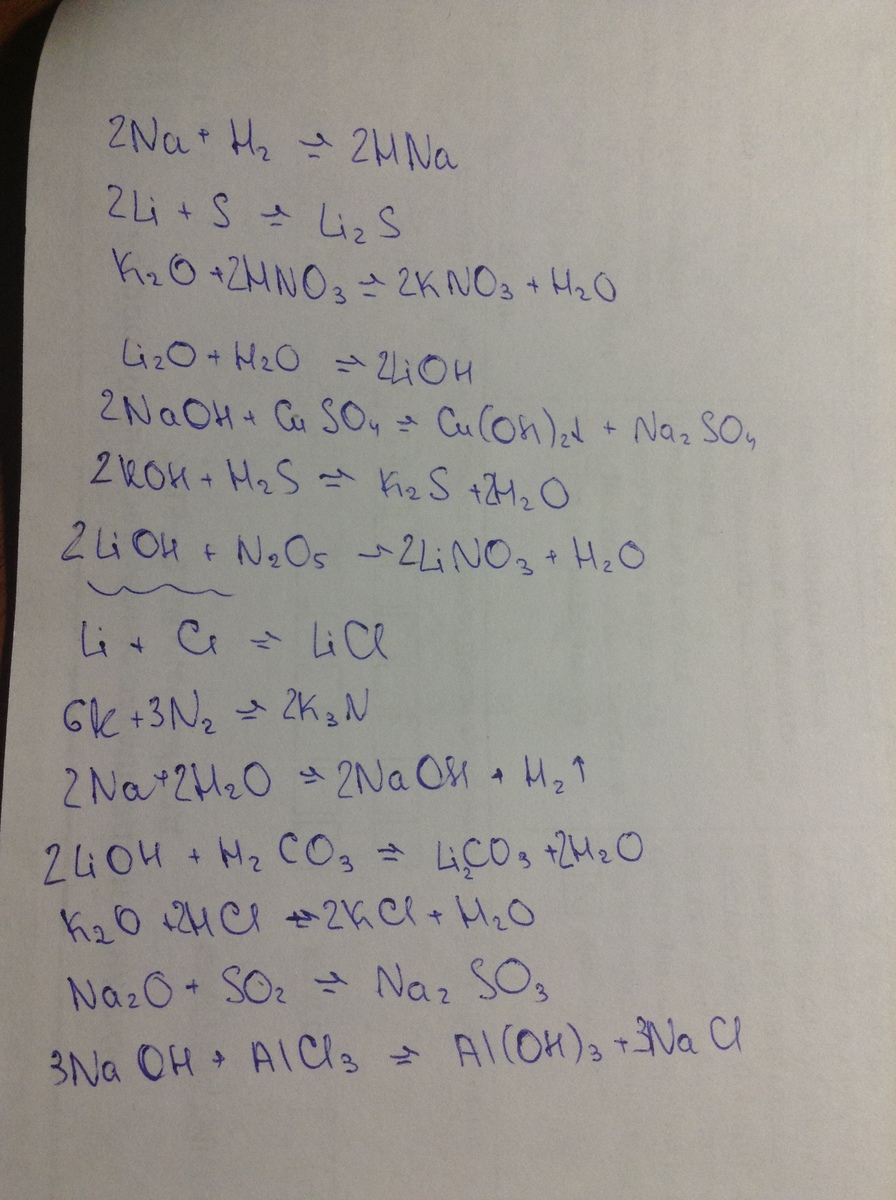 2Na + H₂ → 2HNa
2Li + S → Li₂S
K₂O + 2HNO₃ → 2KNO₃ + H₂O
Li₂O + H₂O → 2LiOH
2NaOH + CuSO₄ → Cu(OH)₂↓ + Na₂SO₄
2KOH + H₂S → K₂S + 2H₂O
2LiOH + N₂O₅ → 2LiNO₃ + H₂O
Li + Cl → LiCl
6K + 3N₂ → 2K₃N
2Na + 2H₂O → 2NaOH + H₂↑
2LiOH + H₂CO₃ → Li₂CO₃ + 2H₂O
K₂O + 2HCl → 2KCl + H₂O
Na₂O + SO₂ → Na₂SO₃
3NaOH + AlCl₃ → Al(OH)₃ + 3NaCl